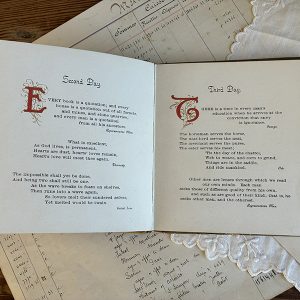 Second Day.
EVERY book is a quotation; and every
house is a quotation out of all forests,
and mines, and stone quarries;
and every man is a quotation
from all his ancestors.
Representative Men.
What is excellent,
As God lives, is permanent;
Hearts are dust, hearts' loves remain,
Heart's love will meet thee again.
Threnody.
The impossible shall yet be done,
And being two shall still be one.
As the wave breaks to foam on shelves,
Then runs into a wave again,
So lovers melt their sundered selves,
Yet melted would be twain.
Initial Love.
Third Day.
THERE is a time in every man's
education when he arrives at the
conviction that envy
is ignorance.
Essays.
The horseman serves the horse,
The neat-herd serves the neat,
The merchant serves the purse,
The eater serves his meat;
'Tis the day of the chattel,
Web to weave, and corn to grind;
Things are in the saddle,
And ride mankind.
Ode.
Other men are lenses through which we read
our own minds. Each man
seeks those of different quality from his own,
and such as are good of their kind; that is, he
seeks other men, and the otherest.
Representative Men.